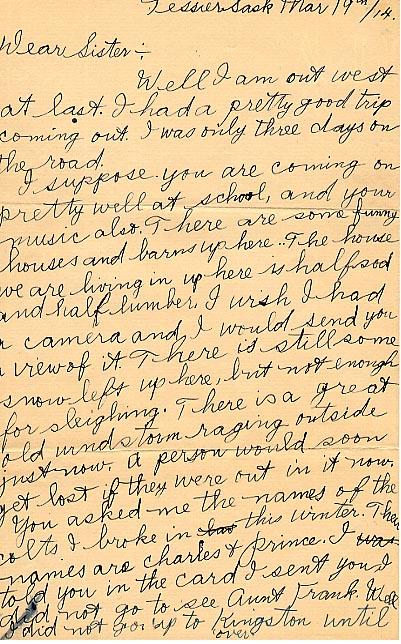 Tessier Sask Mar 19th/14.
Dear Sister:-
Well I am out west
at last. I had a pretty good trip
coming out. I was only three days on
the road.
I suppose you are coming on
pretty well at school, and your
music also. There are some funny
houses and barns up here. The house
we are living in up here is half sod
and half lumber. I wish I had
a camera and I would send you
a view of it. There is still some
snow left up here, but not enough
for sleighing. There is a great
old wind storm raging outside
just now. a person would soon
get lost if they were out in it now.
You asked me the names of the
colts I broke in this winter. Their
names are charles & prince. I was
told you in the card I sent you I
did not go to see Aunt Frank. We
did not go up to Kingston until
over